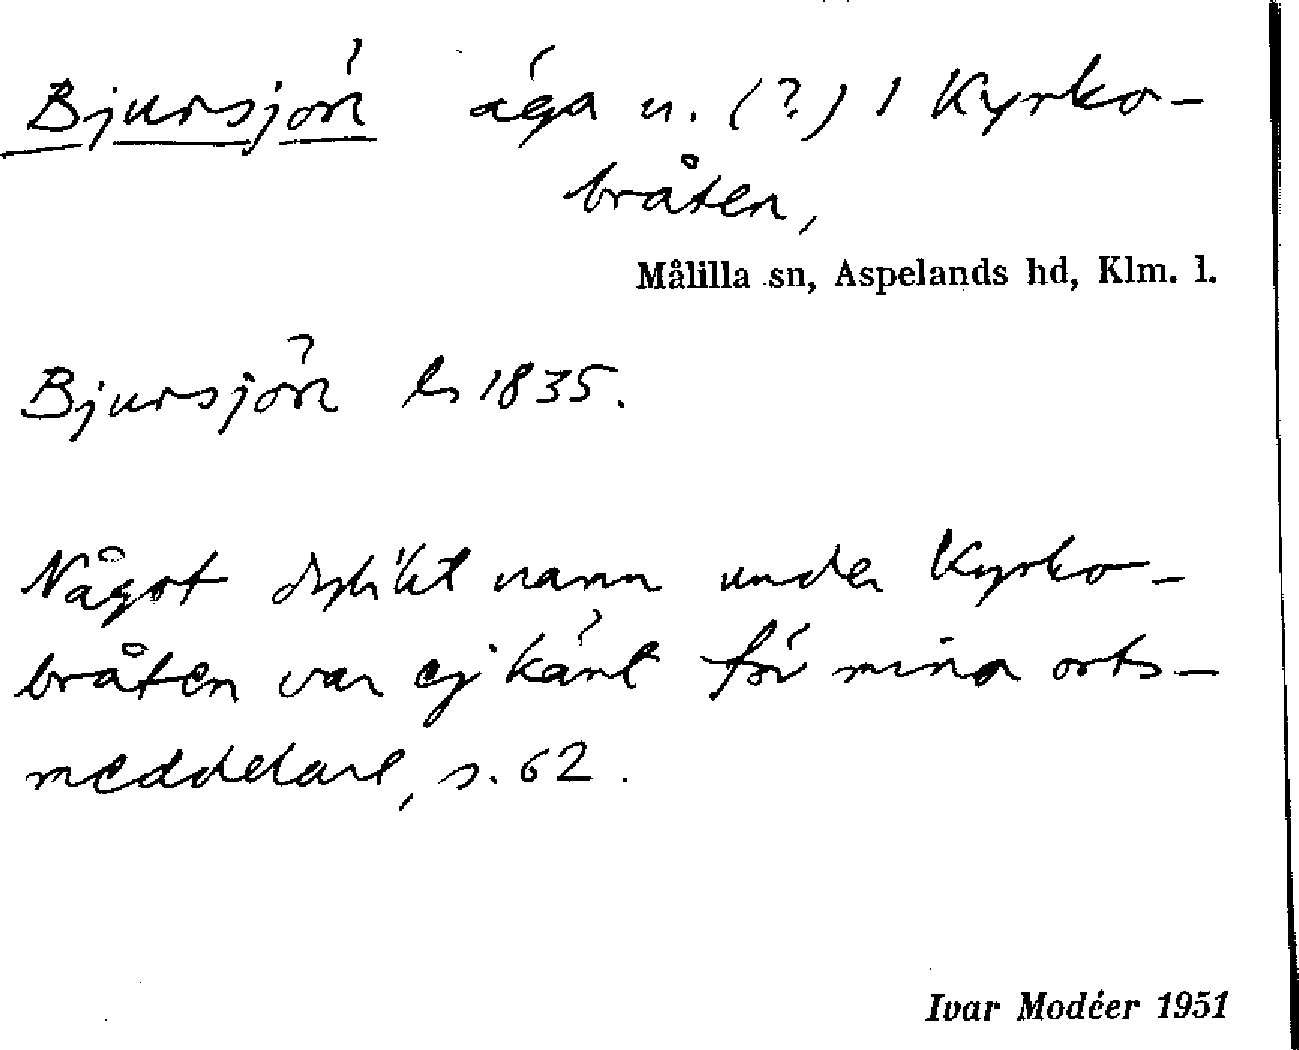 Bjursjön äga u. (?) 1 Kyrko-
bråten,
Målilla sn, Aspelands hd, Klm. l.
Bjursjön ls 1835.
Något dylikt namn under Kyrko-
bråten var ej känt för mina orts-
meddelare, s. 62.
Ivar Modéer 1951